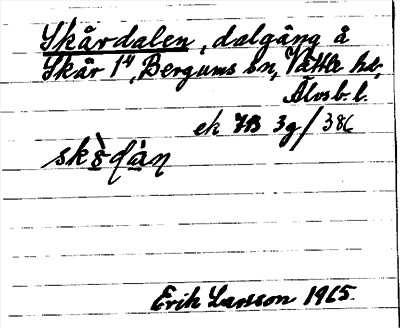 Skårdalen, dalgång å
Skår 1⁴, Bergums sn, Vättle hd,
Älvsb. l.
ek 7B 3g/386
skò̱ḍȧ̱ṇ
Erik Larsson 1965.